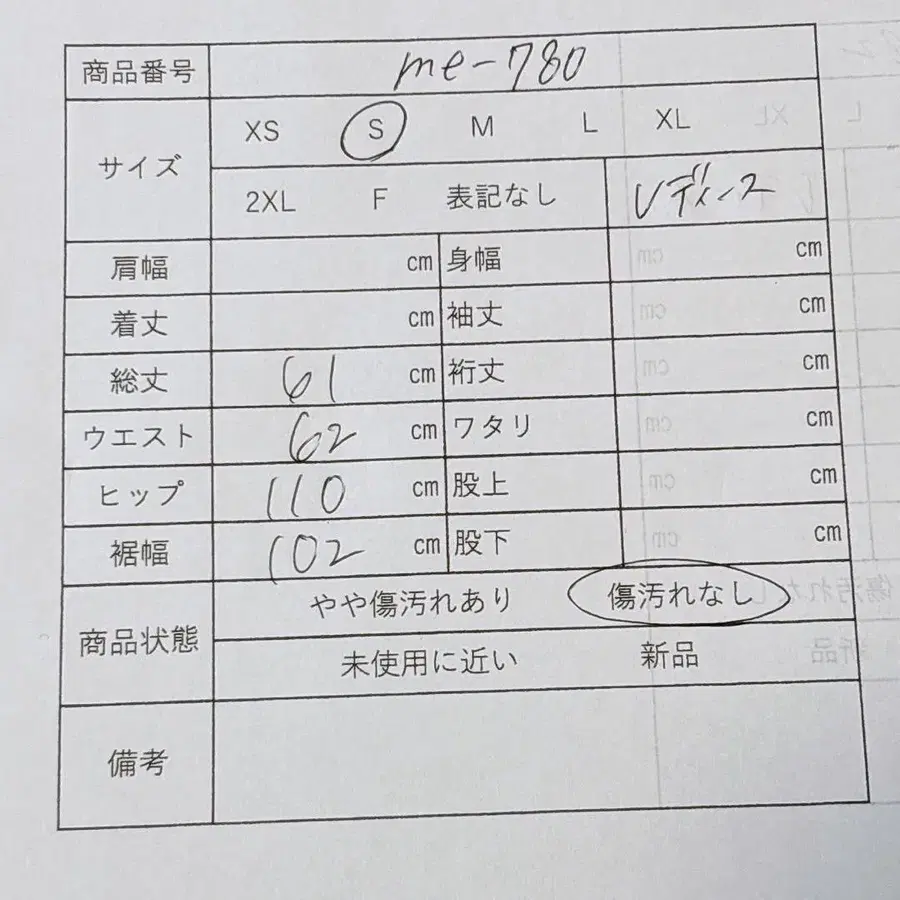 商品番号 me-780
サイズ XS S M L XL
2XL F 表記なし レディース
肩幅 cm 身幅 cm
着丈 cm 袖丈 cm
総丈 61 cm 裄丈 cm
ウエスト 62 cm ワタリ cm
ヒップ 110 cm 股上 cm
裾幅 102 cm 股下 cm
商品状態 やや傷汚れあり 傷汚れなし
未使用に近い 新品
備考